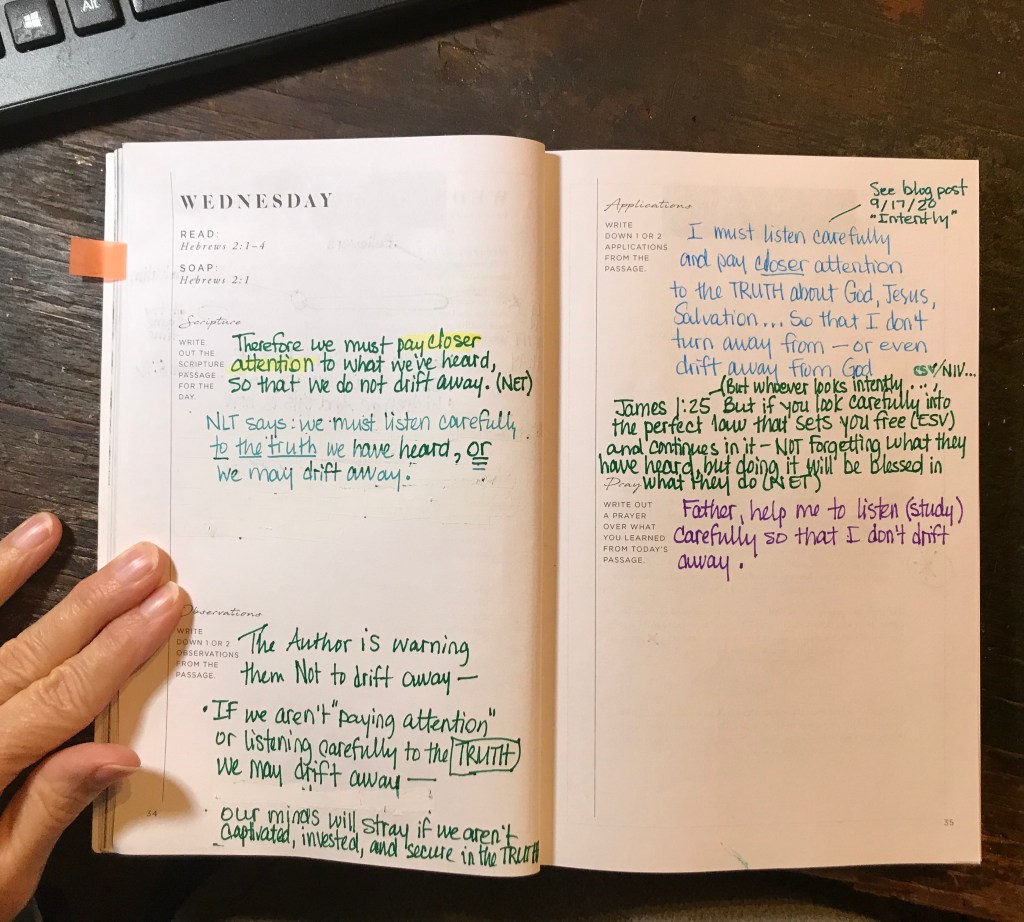 Alt
WEDNESDAY
READ:
Hebrews 2:1–4
SOAP:
Hebrews 2:1
Scripture
WRITE
OUT THE
SCRIPTURE
PASSAGE
FOR THE
DAY.
Therefore we must pay closer
attention to what we've heard,
so that we do not drift away. (NET)
NLT says: we must listen carefully
to the truth we have heard, or
we may drift away.
Observations
WRITE
DOWN 1 OR 2
OBSERVATIONS
FROM THE
PASSAGE.
The Author is warning
them Not to drift away —
• IF we aren't "paying attention"
or listening carefully to the TRUTH
we may drift away —
• our minds will stray if we aren't
captivated, invested, and secure in the TRUTH
34
See blog post
9/17/20
"Intently"
Applications
WRITE
DOWN 1 OR 2
APPLICATIONS
FROM THE
PASSAGE.
I must listen carefully
and pay closer attention
to the TRUTH about God, Jesus,
Salvation... So that I don't
turn away from — or even
drift away from God
ESV/NIV...
(But whoever looks intently ...,
James 1:25 But if you look carefully into
the perfect law that sets you free (ESV)
and continues in it — NOT Forgetting what they
have heard, but doing it will be blessed in
what they do (NET)
Pray
WRITE OUT
A PRAYER
OVER WHAT
YOU LEARNED
FROM TODAY'S
PASSAGE.
Father, help me to listen (study)
carefully so that I don't drift
away.
35